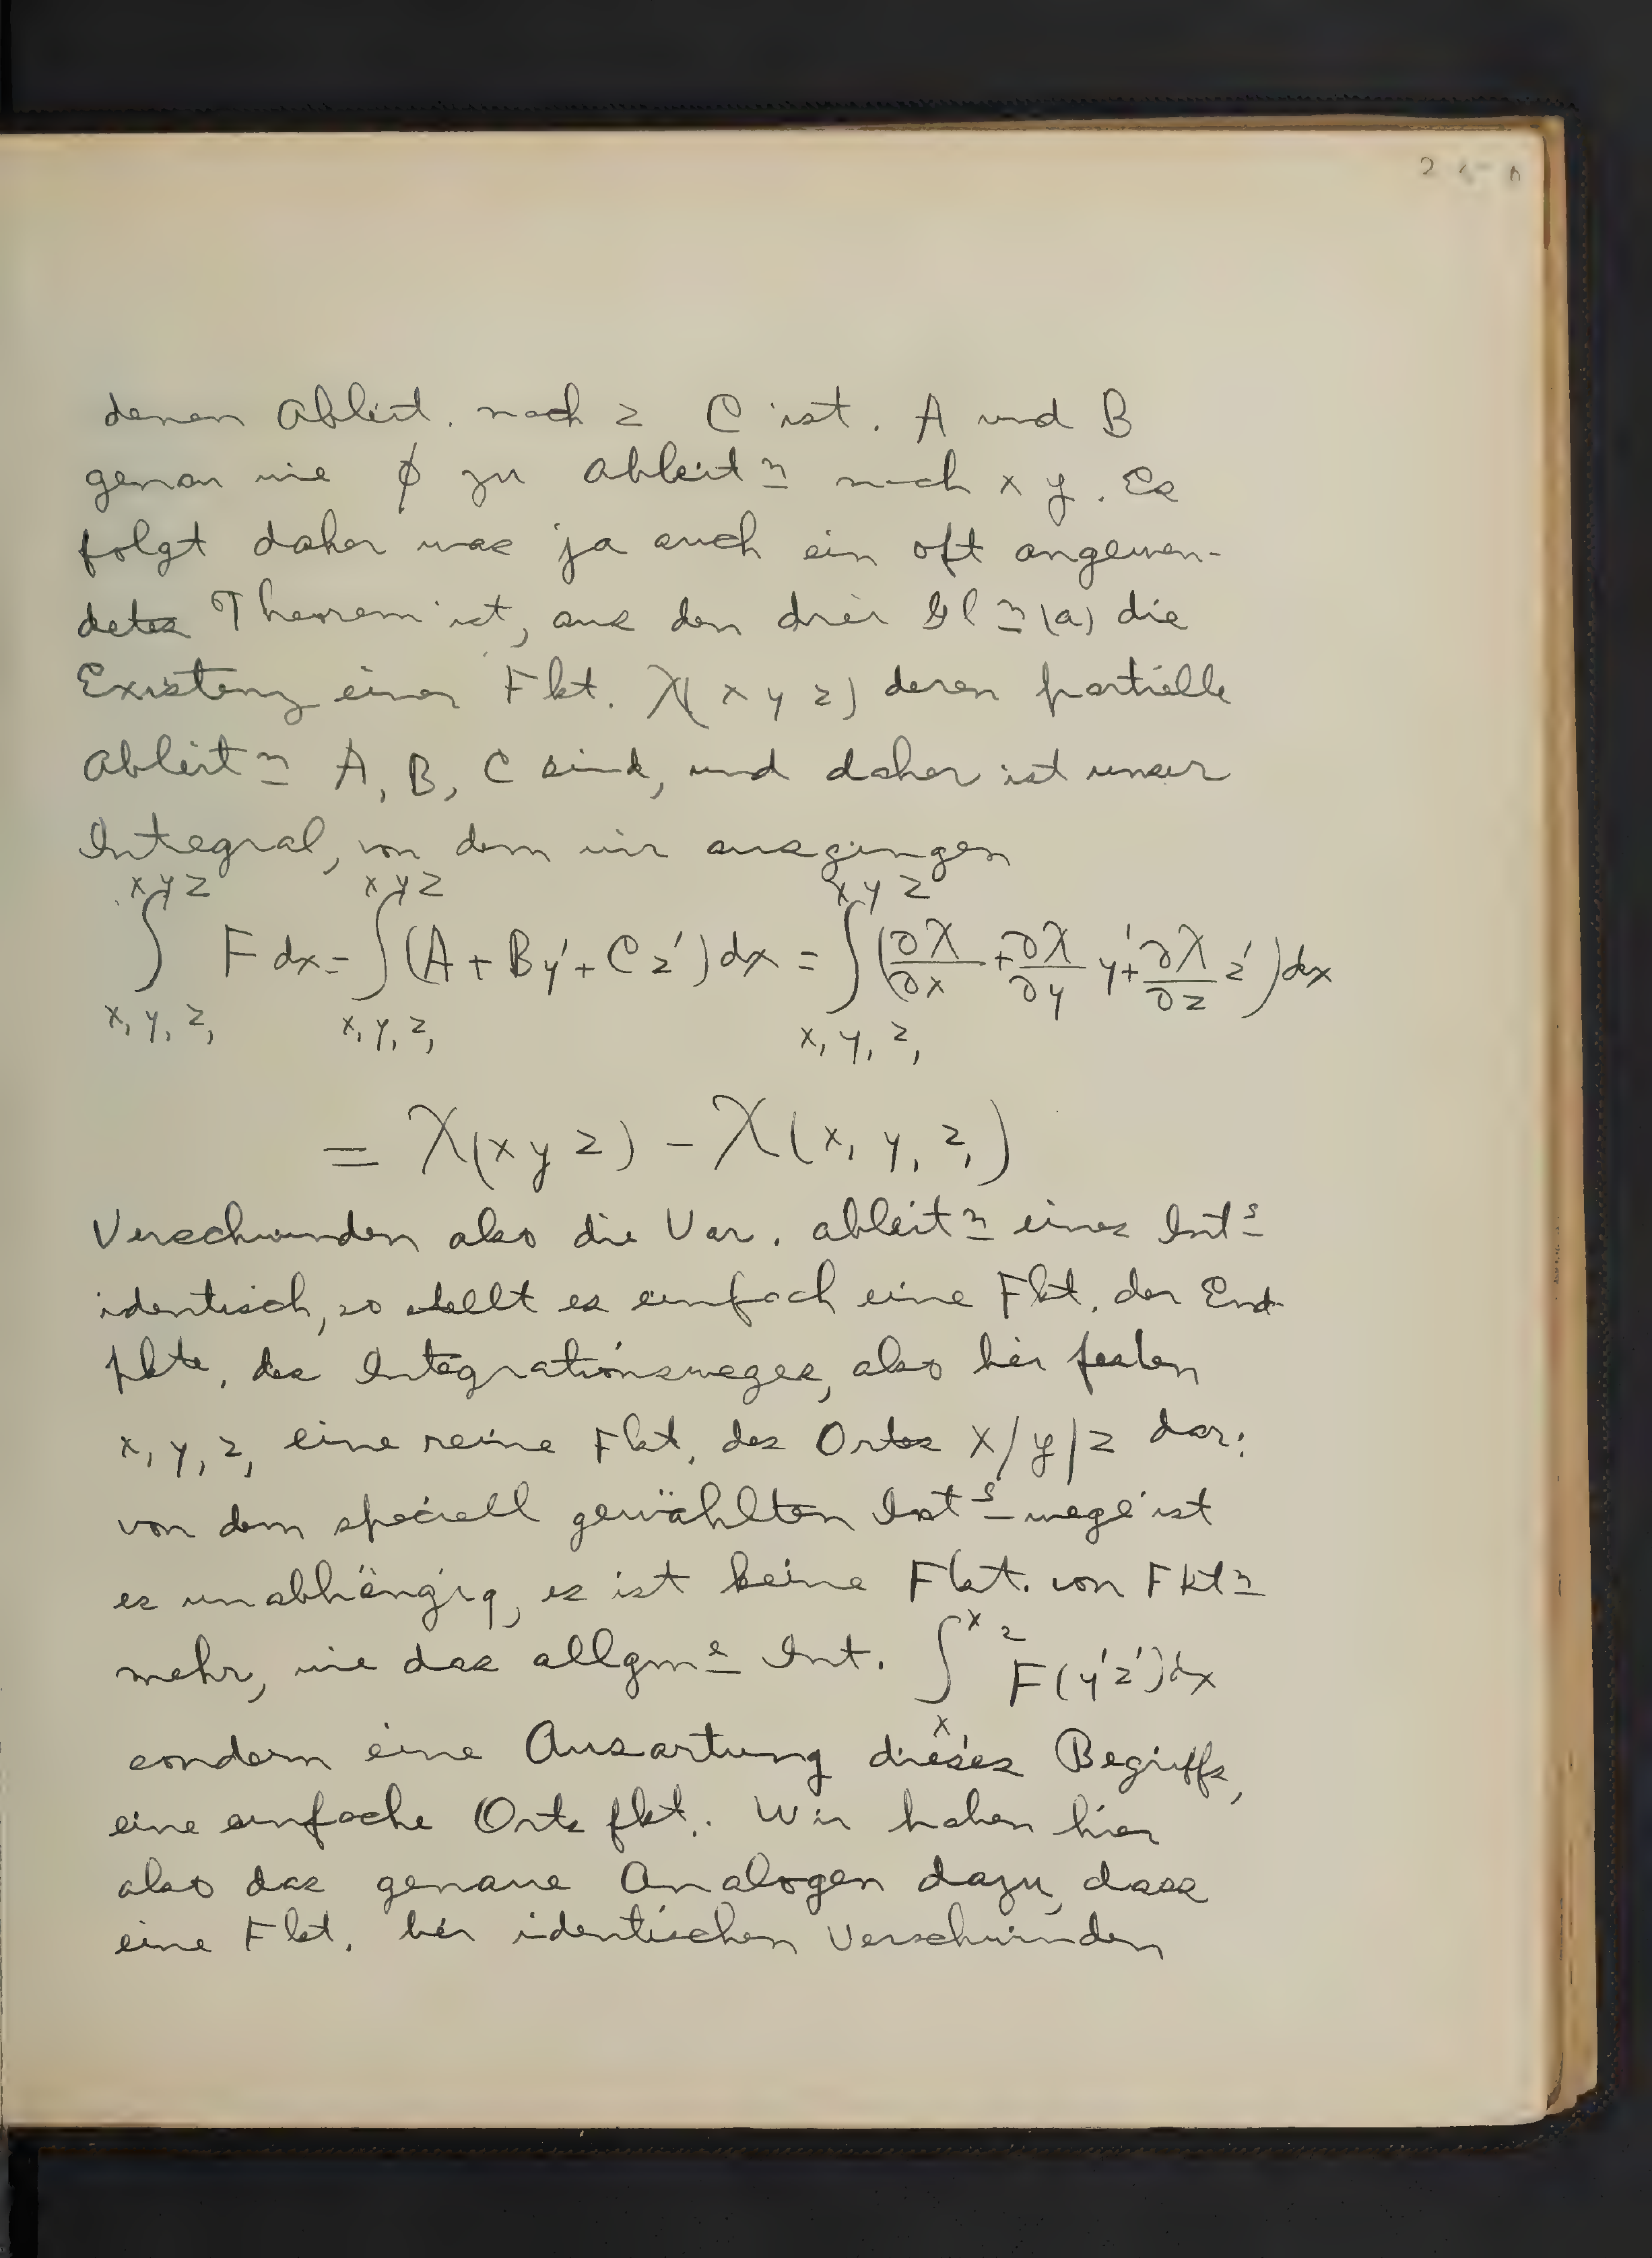 denen Ableit. nach z C ist. A und B
genau wie ϕ zu Ableit<u>n</u> nach x y. Es
folgt daher was ja auch ein oft angewen-
detes Theorem ist, aus den drei Gl<u>n</u> (a) die
Existenz einer Fkt. χ(x y z) deren partielle
Ableit<u>n</u> A, B, C sind, und daher ist unser
Integral, von dem wir ausgingen
∫_{x₁ y₁ z₁}^{x y z} F dx = ∫_{x₁ y₁ z₁}^{x y z} (A + By' + Cz') dx = ∫_{x₁ y₁ z₁}^{x y z} (∂χ/∂x + ∂χ/∂y y' + ∂χ/∂z z') dx
= χ(x y z) - χ(x₁ y₁ z₁)
Verschwinden also die Var. ableit<u>n</u> eines Int<u>s</u>
identisch, so stellt es einfach eine Fkt. der End-
pkte, des Integrationsweges, also bei festen
x₁ y₁ z₁ eine reine Fkt. des Ortes x/y/z dar:
von dem speciell gewählten Int<u>s</u>-wege ist
es unabhängig, es ist keine Fkt. von Fkt<u>n</u>
mehr, wie das allgm<u>e</u> Int. ∫_{x₁}^{x₂} F(y'z')dx
sondern eine Ausartung dieses Begriffs,
eine einfache Ortsfkt.. Wir haben hier
also das genaue Analogen dazu, dass
eine Fkt. bei identischen Verschwinden